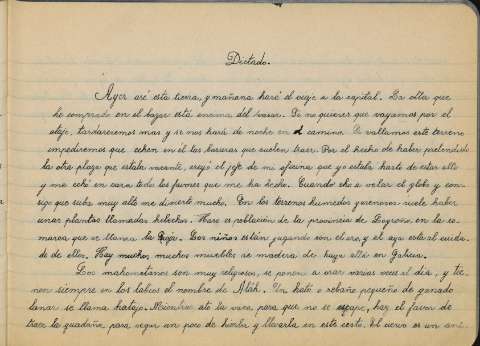 Dictado.
Ayer aré esta tierra, y mañana haré el viaje a la capital. La olla que
he comprado en el bazar está encima del vasar. Si no quieres que vayamos por el
atajo, tardaremos mas y se nos hará de noche en el camino. Si vallamos este terreno
impediremos que echen en él las basuras que suelen traer. Por el hecho de haber pretendido
la otra plaza que estaba vacante, creyó el jefe de mi oficina que yo estaba harto de estar allí
y me echó en cara todo los favores que me ha hecho. Cuando echo a volar el globo y con-
sigo que suba muy alto me divierto mucho. En los terrenos humedos y arenosos suele haber
unas plantas llamadas helechos. Haro es población de la provincia de Logroño, en la co-
marca que se llama la Rioja. Los niños están jugando con el aro, y el aya esta al cuida-
do de ellos. Hay muchos, muchos muebles de madera de haya allá en Galicia.
Los mahometanos son muy religiosos, se ponen a orar varias veces al día, y tie-
nen siempre en los labios el nombre de Aláh. Un hato o rebaño pequeño de ganado
lanar se llama hatajo. Mientras ato la vaca, para que no se escape, haz el favor de
traer la guadaña, para segar un poco de hierba y llevarla en este cesto. El ciervo es un ani-